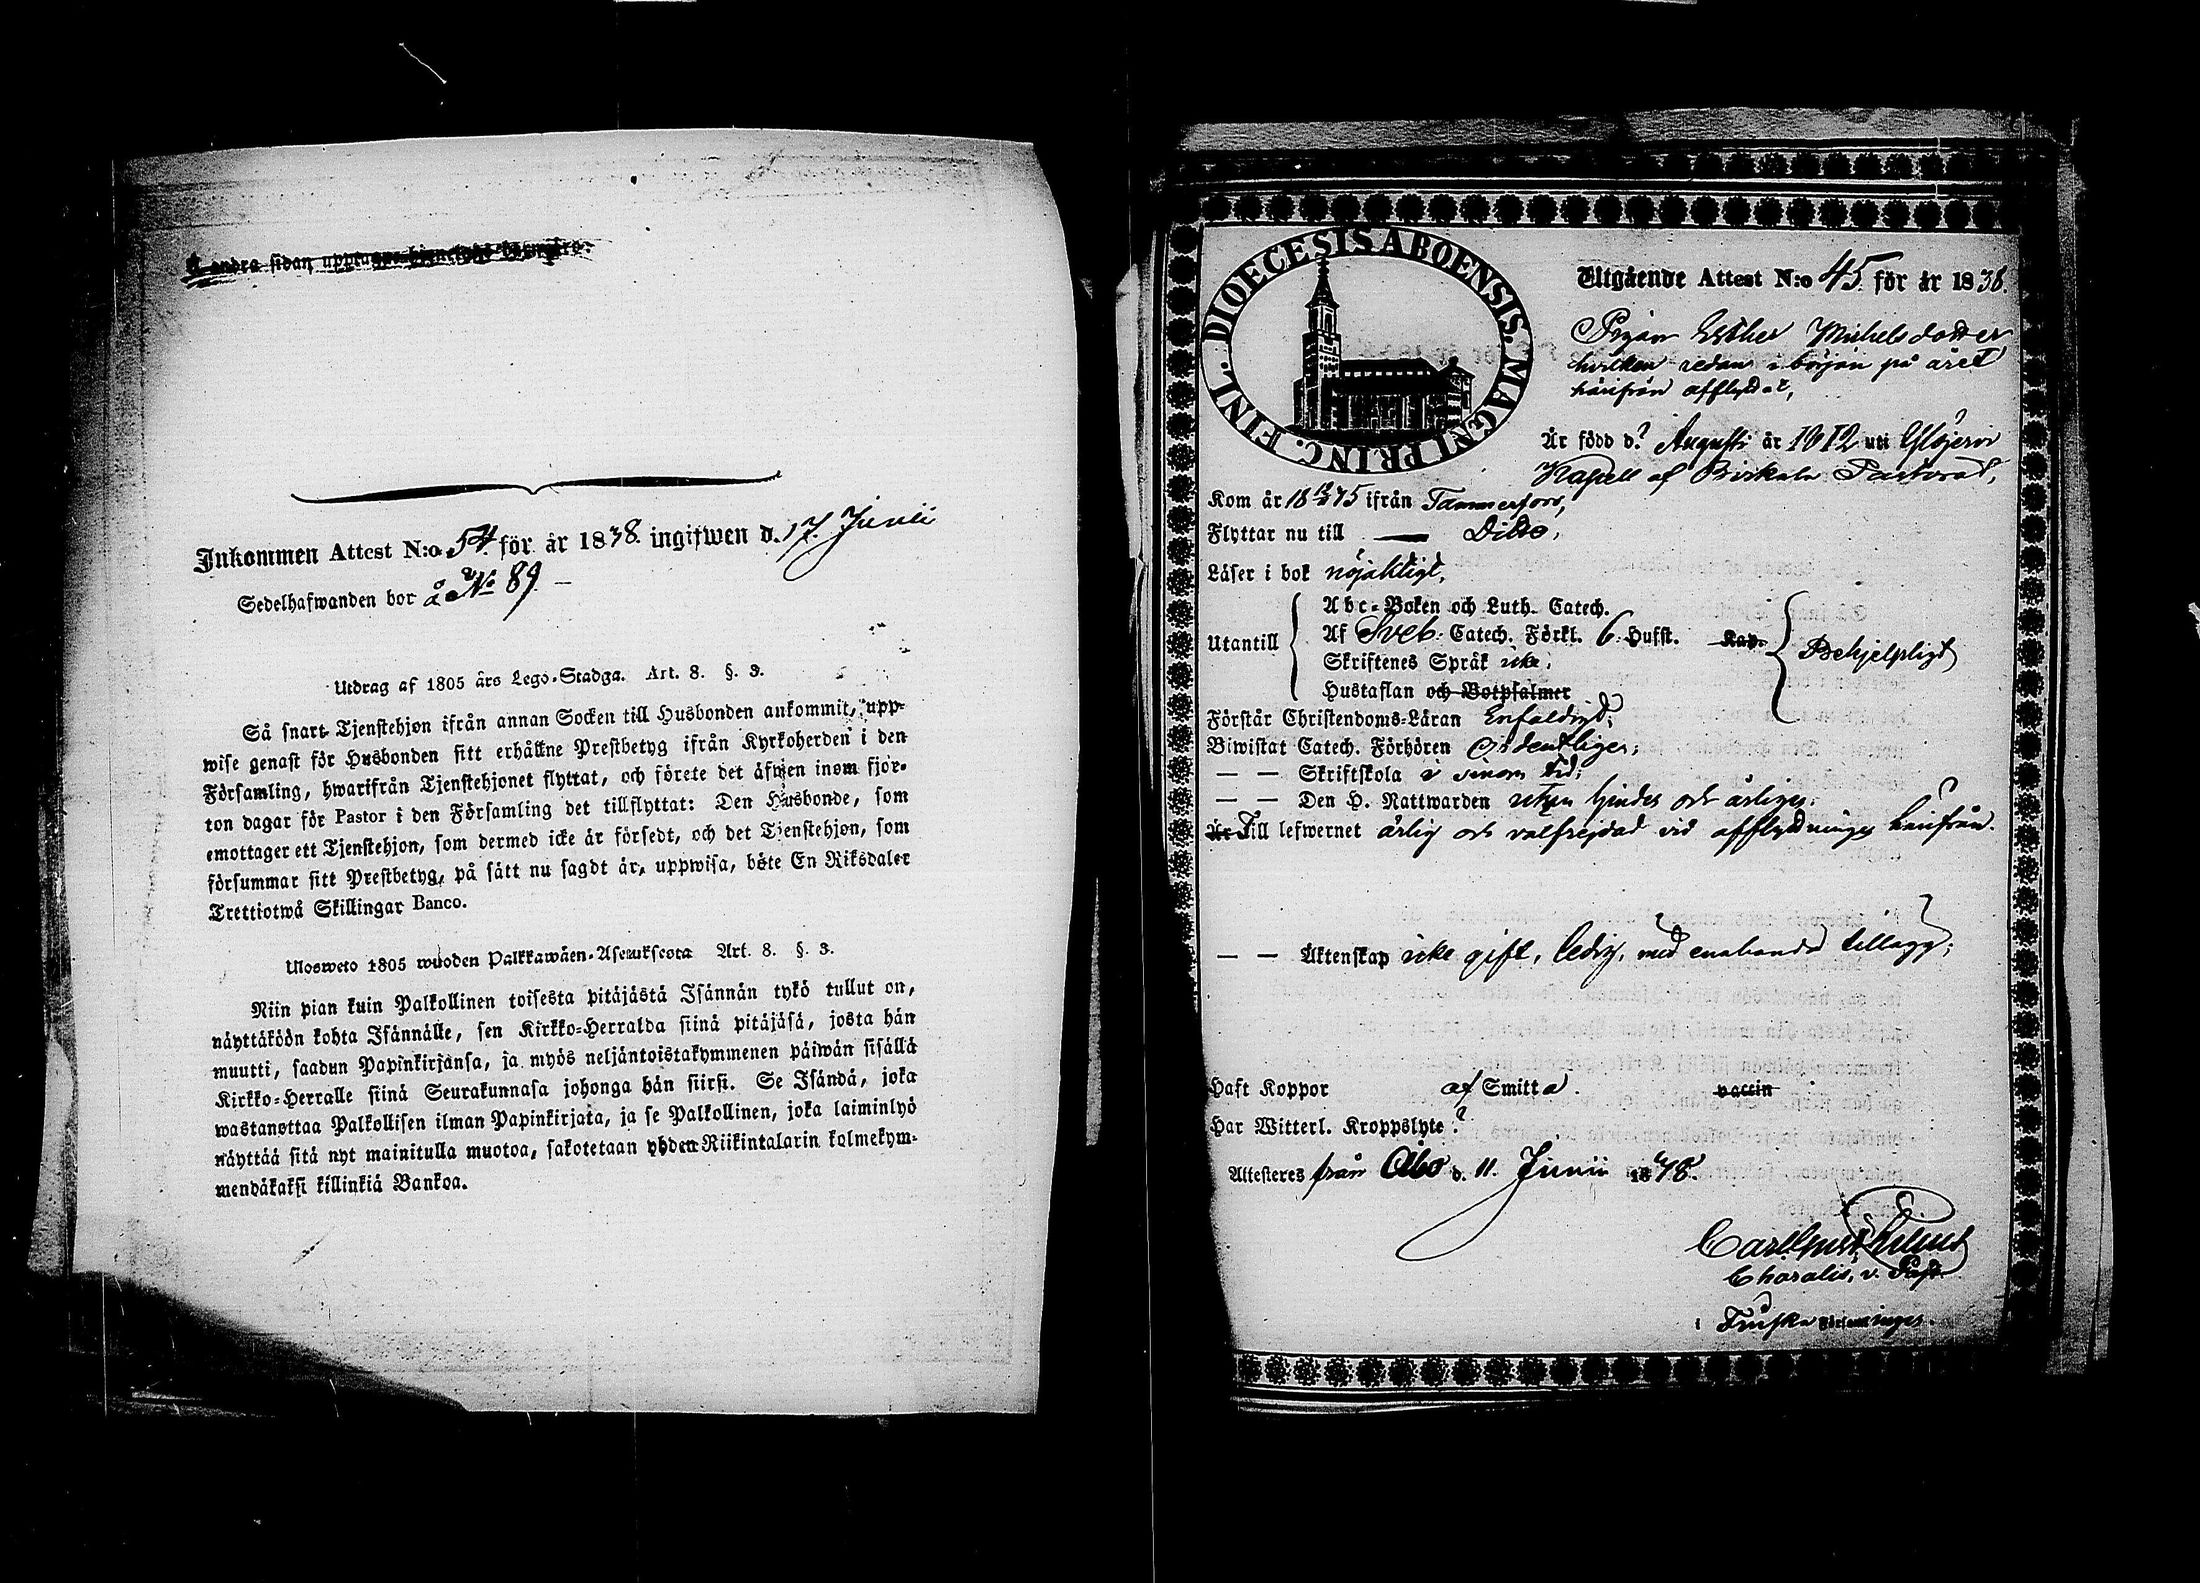 Å andra sidan upptages
Inkommen Attest N:o 54. för år 1838. ingifwen d. 17. Junii
Sedelhafwanden bor å No 89.
Utdrag af 1805 års Lego-Stadga. Art. 8. §. 3.
Så snart Tjenstehjon ifrån annan Socken till Husbonden ankommit, upp-
wise genast för Husbonden sitt erhållne Prestbetyg ifrån Kyrkoherden i den
Församling, hwarifrån Tjenstehjonet flyttat, och förete det äfwen inom fjor-
ton dagar för Pastor i den Församling det tillflyttat: Den Husbonde, som
emottager ett Tjenstehjon, som dermed icke är försedt, och det Tjenstehjon, som
försummar sitt Prestbetyg, på sätt nu sagdt är, uppwisa, böte En Riksdaler
Trettiotwå Skillingar Banco.
Ulosweto 1805 wuoden Palkkawäen-Asetuksesta Art. 8. §. 3.
Niin pian kuin Palkollinen toisesta pitäjästä Isännän tykö tullut on,
näyttäköön kohta Isännälle, sen Kirkko-Herralda siinä pitäjäsä, josta hän
muutti, saadun Papinkirjansa, ja myös neljäntoistakymmenen päiwän sisällä
Kirkko-Herralle siinä Seurakunnasa johonga hän siirsi. Se Isändä, joka
wastanottaa Palkollisen ilman Papinkirjata, ja se Palkollinen, joka laiminlyö
näyttää sitä nyt mainitulla muotoa, sakotetaan yhden Riikintalarin kolmekym-
mendäkaksi killinkiä Bankoa.
DIOECESIS ABOENSIS. MAGNI PRINC. FINL.
Utgående Attest N:o 45. för år 1838.
Pigan Esther Michelsdotter
hvilken redan i början på året
härifrån afflyttat,
År född d. ? Augusti år 1812 uti Ylöjervi
Kapell af Birkala Pastorat,
Kom år 18 ifrån Tammerfors,
Flyttar nu till — Ditto,
Läser i bok nöjaktigt,
Utantill
Abc-Boken och Luth. Catech.
Af Sveb. Catech. Förkl. 6. Hufst. Kap.
Skriftenes Språk icke,
Hustaflan och Botpsalmer
Behjelpligt
Förstår Christendoms-Läran Enfaldigt;
Biwistat Catech. Förhören Ordentligen;
— — Skriftskola i sinom tid;
— — Den H. Nattwarden och årligen;
Är Till lefwernet ärlig och välfrejdad vid afflyttningen härifrån.
— — Äktenskap icke gift, ledig, med enahanda tillägg;
Haft Koppor af Smitta. vaccin
Har Witterl. Kroppslyte ?
Attesteres från Åbo d. 11. Junii 18
Carl
v. Past.
i Finska Församlingen.